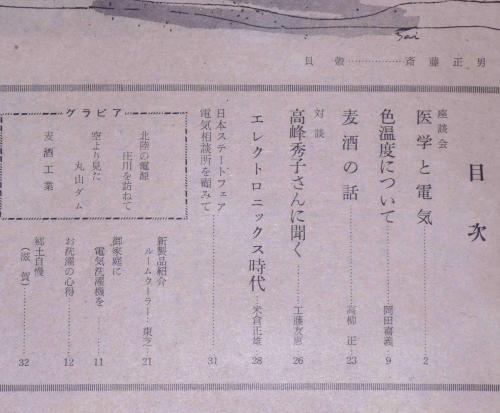 Sai
貝殻……………斎藤正男
目次
座談会
医学と電気……………2
色温度について……………岡田喜義 9
麦酒の話……………高柳正 23
対談
高峰秀子さんに聞く……………工藤友恵 26
エレクトロニックス時代……………米倉正雄 28
日本ステートフェア
電気相談所を顧みて……………31
グラビア
北陸の電源
庄川を訪ねて
空より見た
丸山ダム
麦酒工業
新製品紹介
ルームクーラー…東芝…21
御家庭に
電気洗濯機を……………11
お洗濯の心得……………12
郷土自慢
(滋賀)……………32